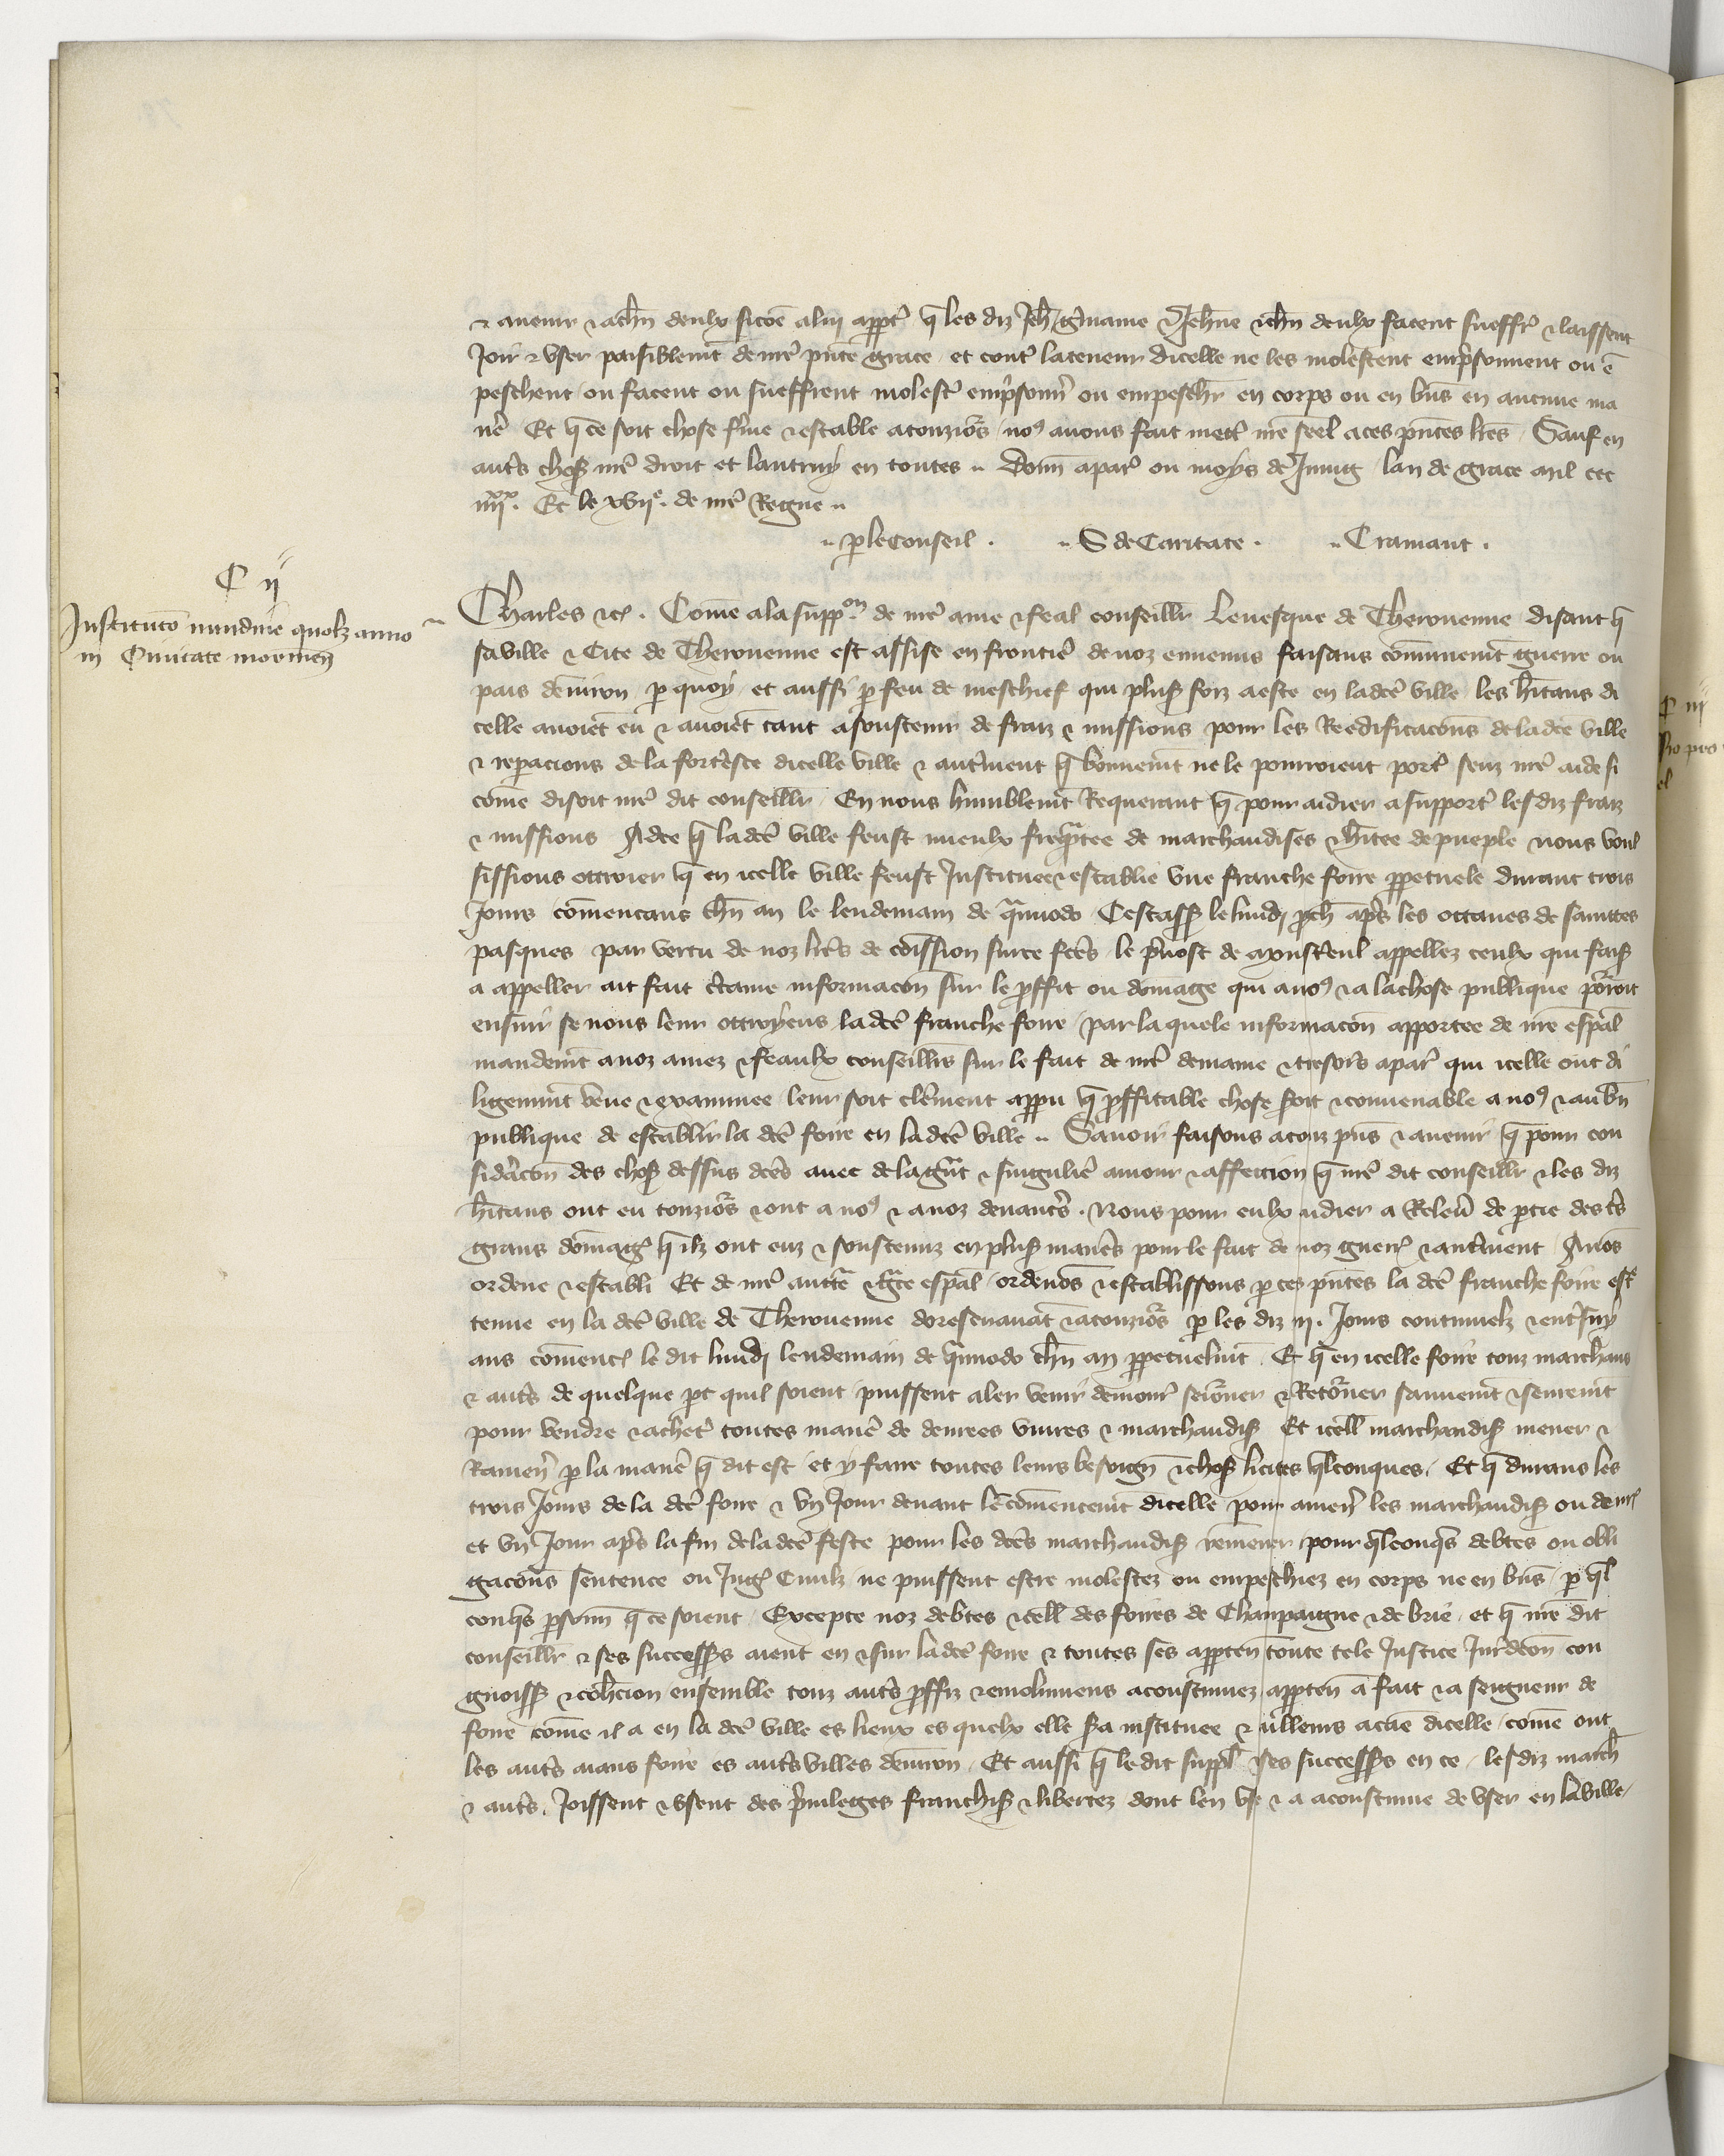 & auenir & a chūn deulx sicōe alui appt̄ q̄ les diz Jeh̄ Germaine & Jehñe & chūn deulx facent sueffr̄ & laissent
Joir & vser paisiblemt̄ de nr̄e pn̄te grace et cont̄ la teneur dicelle ne les molestent emprisonnent ou ē
peschent ou facent ou sueffrent molest̄ emprisonn̄ ou empeschr̄ en corps ou en biēs en aucune ma
nr̄e Et q̄ ce soit chose f̄me & estable a touzio᷑s no᷒ auons fait mett̄ nr̄e seel a ces pn̄tes lr̄es Sauf en
autr̄s chos̄ nr̄e droit et lautruy en toutes .. Donn̄ a par̄ ou moys de Juing lan de grace mil ccc
iiiixx. Et le xviie. de nr̄e Regne ..
.. p̄ le Conseil . .. S de Caritate . .. Cramant .
C ij
Institucō nundine quolz anno
in Ciuitate morineñ
Charles &c̄ . Cōme a la supp.on de nr̄e ame & feal conseillr̄ Leuesque de Therouenne disant q̄
sa ville & Cite de Therouenne est assise en frontiē de noz ennemis faisans cōmunemt̄ guerre ou
pais denuiron p̄ quoy et aussi p̄ feu de meschief qui plus̄ foiz a este en la dc̄e ville les hītans di
celle auoiēt eu & auoiēt tant a soustenir de fraiz & missions pour les Reedificacōns de la dc̄e ville
& repacions de la fort̄esce dicelle ville & autrement q̄ bonnemt̄ ne le pourroient port̄ senz nr̄e aide si
cōme disoit nr̄e dit conseillr̄ En nous humblemt̄ Requerant q̄ pour aidier a support̄ les diz fraiz
& missions Adce q̄ la dc̄e ville feust mieulx freq̄ntee de marchandises & hītee de pueple nous voul
sissions ottroier q̄ en icelle ville feust Instituee & establie vne franche foire ppetuele durant trois
Jours cōmencans chūn an le lendemain de q̄imodo Cestass̄ le lundj pch̄ ap̄s les ottaues de sainttes
pasques par vertu de noz lr̄es de cōission sur ce fc̄es le p̄uost de monst̄eul appellez ceulx qui fais̄
a appeller ait fait c̄taine informacōn sur le p̄ffit ou dōmage qui a no᷒ & a la chose publique po᷑roit
ensuir se nous leur ottroyens la dc̄e franche foire par la quele informacōn apportee de nr̄e esp̄al
mandemt̄ a noz amez & feaulx conseillr̄s sur le fait de nr̄e demaine & tresors a par̄ qui icelle ont di
ligemmt̄ veue & examinee leur soit clerement appu q̄ p̄ffitable chose soit & conuenable a no᷒ & au bn̄
publique de establir la dc̄e foire en la dc̄e ville .. Sauoir faisons a touz pn̄s & auenir q̄ pour con
sidac̄on des chos̄ dessus dc̄es auec de la grāt & singuliē amour & affeccion q̄ nr̄e dit conseillr̄ & les diz
hītans ont eu touzio᷑s & ont a no᷒ & a noz deuancrs̄ . Nous pour eulx aidier a Releū de p̄tie des tr̄s
grans dōmaḡ q̄ ilz ont euz & soustenuz en plus̄ manr̄es pour le fait de noz guerr̄ & autrement Auōs
ordene & establi Et de nr̄e auct̄te & gr̄ce esp̄al ordenōs & establissons p̄ ces pn̄tes la dc̄e franche foire est̄
tenue en la dc̄e ville de Therouenne doresenauāt & a touzio᷑s p̄ les diz iij. Jours continuelz & entsuy
ans cōmenc̄ le dit lundj lendemain de q̄imodo chūn an ppetuelmt̄ . Et q̄ en icelle foire touz marchans
& autr̄s de quelque pt quil soient puissent aler venir demour̄ seio᷑ner & Reto᷑ner sauuemt̄ & seuremt̄
pour vendre & achet̄ toutes manr̄e de denrees viures & marchandis̄ Et icell̄ marchandis̄ mener &
Ramen̄ p̄ la manr̄e q̄ dit est et y faire toutes leurs besoign̄ & chos̄ licites q̄lconques. Et q̄ durans les
trois Jours de la dc̄e foire & vn Jour deuant le cōmencemt̄ dicelle pour amen̄ les marchandis̄ ou denr̄
et vn Jour ap̄s la fin de la dc̄e feste pour les dc̄es marchandis̄ remener pour q̄lconq̄s debtes ou obli
gacōns sentence ou Juḡ Ciuilz ne puissent estre molestez ou empeschiez en corps ne en biēs p̄ q̄l
conq̄s p̄sonn̄ q̄ ce soient Excepte noz debtes & icell̄ des foires de Champaigne & de brie et q̄ nr̄e dit
conseillr̄ & ses success̄s aient en & sur la dc̄e foire & toutes ses appten̄ toute tele Justice Jurdcōn con
gnoiss̄ & cohcion ensemble touz autr̄s p̄ffiz & emolumens acoustumez appten̄ a fait & a seigneur de
foire cōme il a en la dc̄e ville es lieux es quelx elle sa instituee & aillieurs a cāe dicelle cōme ont
les autr̄s aians foire es autr̄s villes denuiron . Et aussi q̄ le dit suppl̄ & ses success̄s en ce les diz march̄
& autr̄s. Joissent & vsent des p̄uileges franchis̄ & libertez dont len vse & a acoustume de vser en la ville